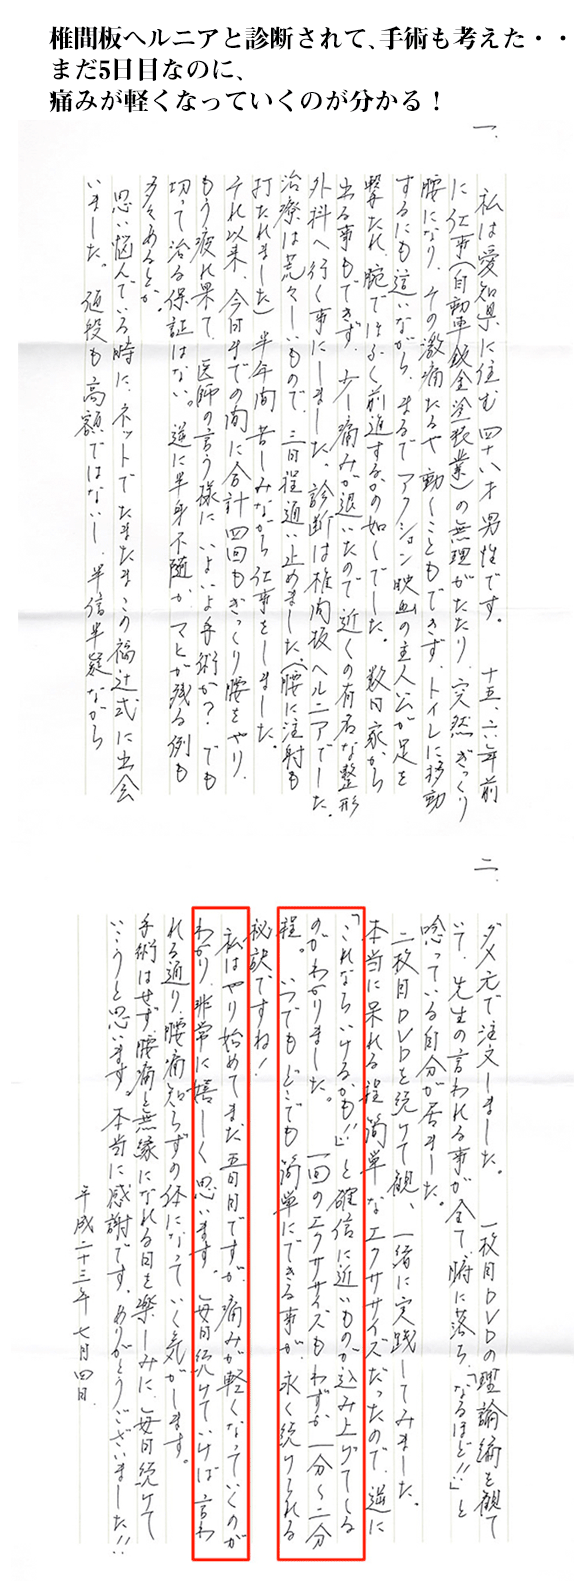 椎間板ヘルニアと診断されて、手術も考えた・・
まだ5日目なのに、
痛みが軽くなっていくのが分かる!
一.
私は愛知県に住む四十八才男性です。 十五、六年前
に仕事(自動車鈑金塗装業)の無理がたたり、突然ぎっくり
腰になり、その激痛たるや動くこともできず、トイレに移動
するにも這いながら、まるでアクション映画の主人公が足を
撃たれ、腕でほふく前進するかの如くでした。 数日家から
出る事もできず、少し痛みが退いたので近くの有名な整形
外科へ行く事にしました。診断は椎間板ヘルニアでした。
治療は荒々しいもので、三日程通い止めました。(腰に注射も
打たれました) 半年間苦しみながら仕事をしました。
それ以来、今日までの間に合計四回もぎっくり腰をやり、
もう疲れ果て、医師の言う様に、いよいよ手術か? でも
切って治る保証はない。 逆に半身不随か、マヒが残る例も
多々あるとか。
思い悩んでいる時に、ネットでたまたまこの福辻式に出会
いました。 値段も高額ではないし、半信半疑ながら
二.
ダメ元で注文しました。 一枚目DVDの理論編を観て
いて、先生の言われる事が全て、腑に落ち、「なるほど!!」と
唸っている自分が居ました。
二枚目DVDを続けて観、一緒に実践してみました。
本当に呆れる程簡単なエクササイズだったので、逆に
「これならいけるかも!!」と確信に近いものが込み上げてくる
のがわかりました。 一回のエクササイズもわずか一分〜二分
程。 いつでもどこでも簡単にできる事が、永く続けられる
秘訣ですね!
私はやり始めてまだ五日目ですが、痛みが軽くなっていくのが
わかり、非常に嬉しく思います。 毎日続けていけば、言わ
れる通り、腰痛知らずの体になっていく気がします。
手術はせず、腰痛と無縁になれる日を楽しみに、毎日続けて
いこうと思います。本当に感謝です。ありがとうございました!!
平成二十三年七月四日.